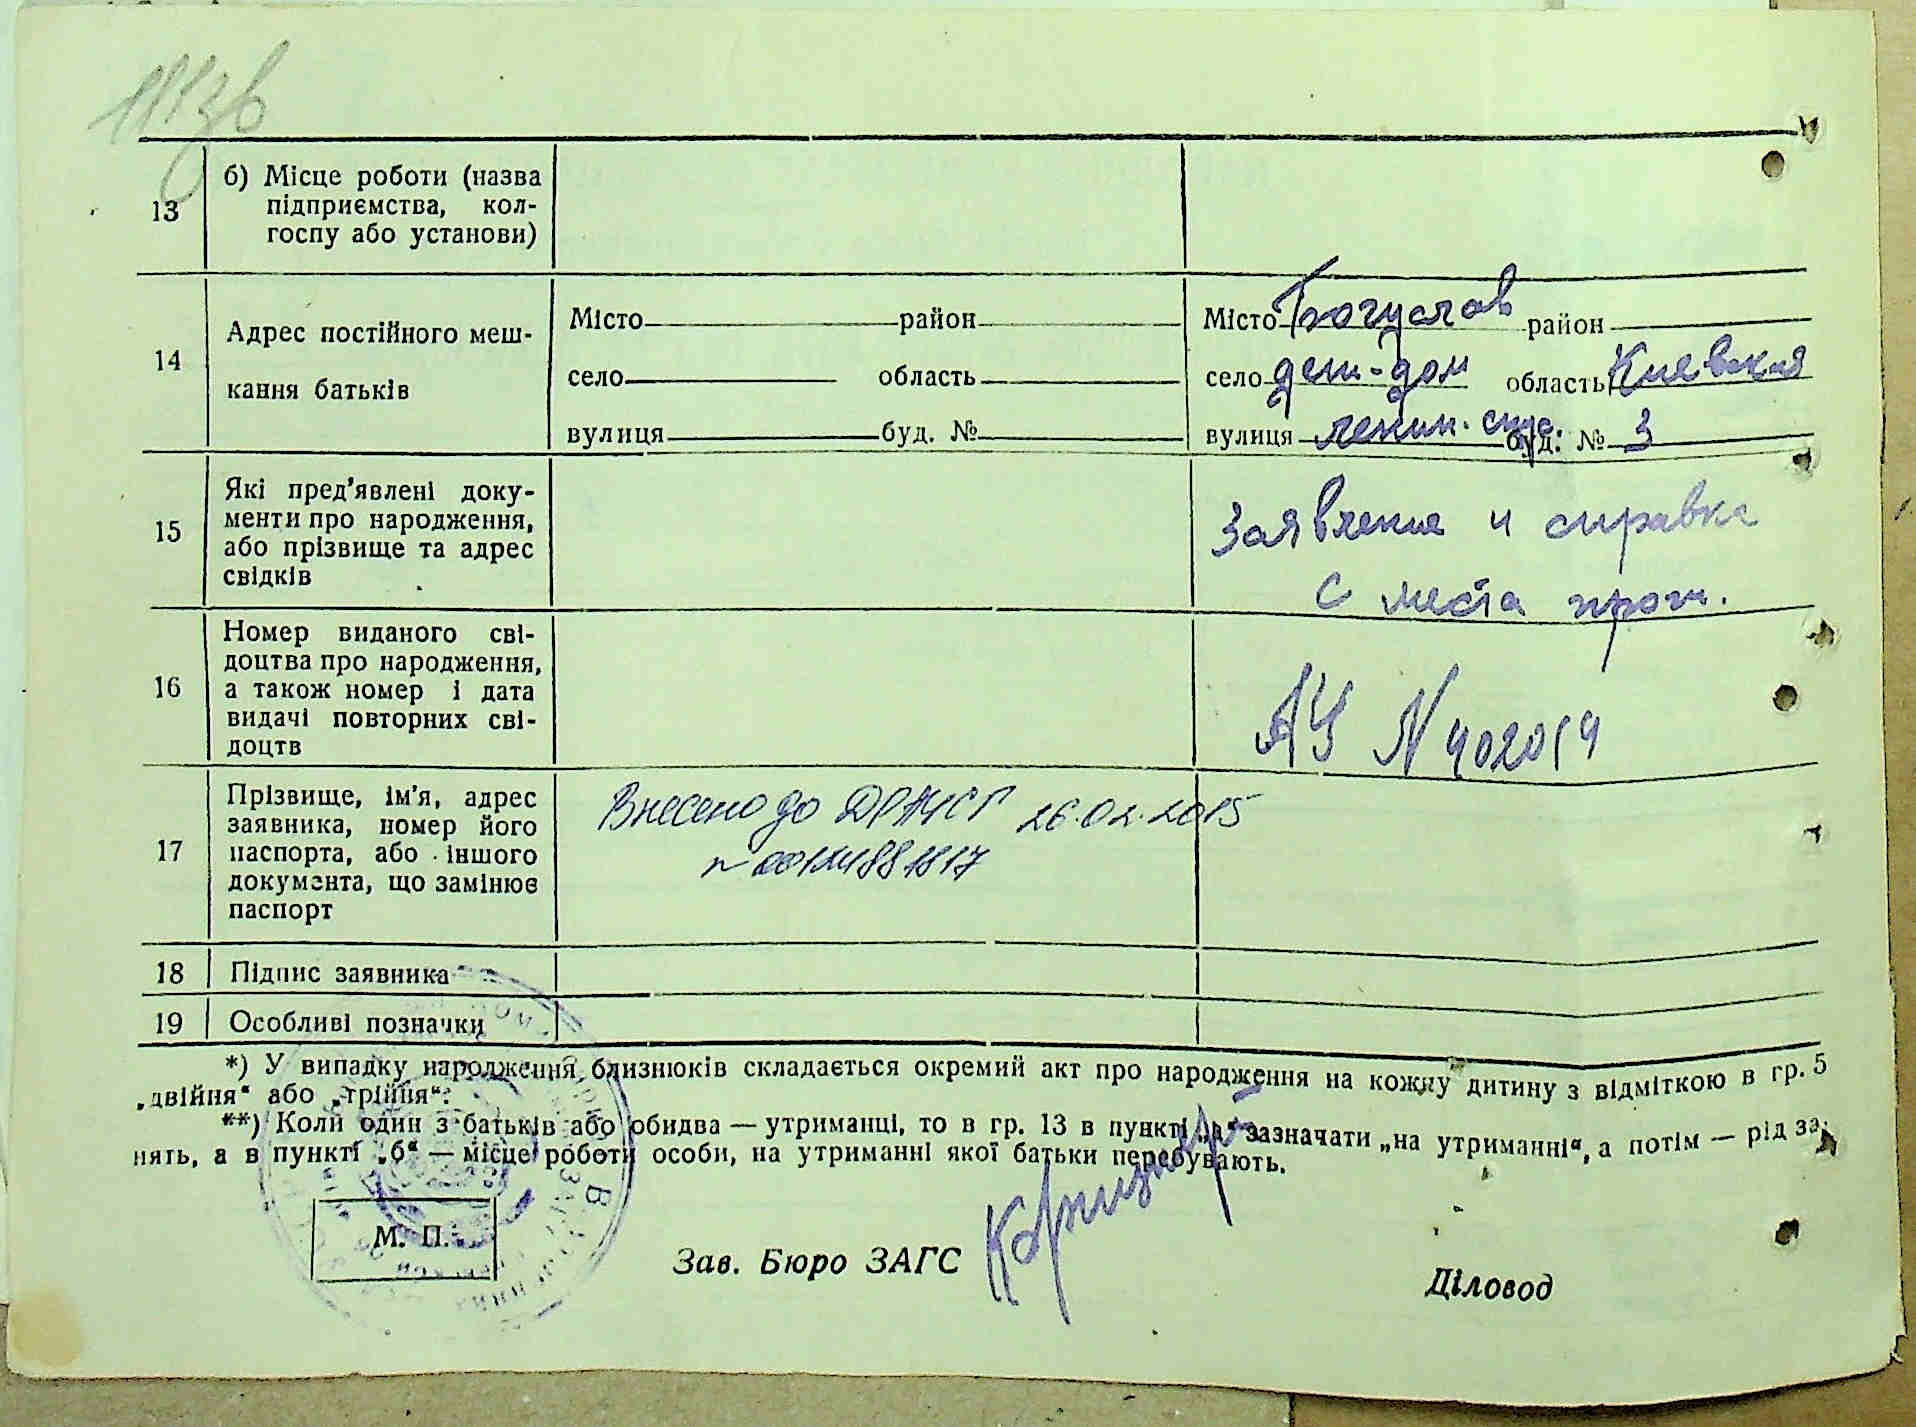 13
б) Місце роботи (назва
підприємства, кол-
госпу або установи)
14
Адрес постійного меш-
кання батьків
Місто район
село область
вулиця буд. №
Місто Богуслав район
село дет-дом область Киевская
вулиця ленин. буд. № 3
15
Які пред'явлені доку-
менти про народження,
або прізвище та адрес
свідків
Заявление и справка
с места
16
Номер виданого сві-
доцтва про народження,
а також номер і дата
видачі повторних сві-
доцтв
АЧ N 402014
17
Прізвище, ім'я, адрес
заявника, номер його
паспорта, або іншого
документа, що замінює
паспорт
Внесено до ДРАЦСГ 26.02.2015
18 Підпис заявника
19 Особливі позначки
*) У випадку народження близнюків складається окремий акт про народження на кожну дитину з відміткою в гр. 5
„двійня“ або „трійня“.
**) Коли один з батьків або обидва — утриманці, то в гр. 13 в пункті „а“ зазначати „на утриманні“, а потім — рід за-
нять, а в пункті „б“ — місце роботи особи, на утриманні якої батьки перебувають.
М. П.
Зав. Бюро ЗАГС
Діловод